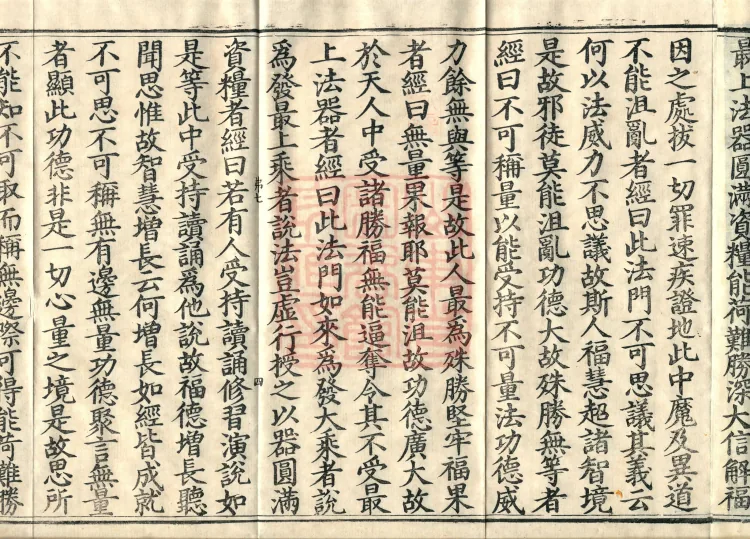 最上法器圓滿資糧能荷難勝深大信解福
因之處拔一切罪速疾證地此中魔及異道
不能沮亂者經曰此法門不可思議其義云
何以法威力不思議故斯人福慧超諸智境
是故邪徒莫能沮亂功德大故殊勝無等者
經曰不可稱量以能受持不可量法功德威
力餘無與等是故此人最為殊勝堅牢福果
者經曰無量果報耶莫能沮故功德廣大故
於天人中受諸勝福無能逼奪令其不受最
上法器者經曰此法門如來為發大乘者說
為發最上乘者說法豈虛行授之以器圓滿
弟七
四
資糧者經曰若有人受持讀誦修習演說如
是等此中受持讀誦為他說故福德增長聽
聞思惟故智慧增長云何增長如經皆成就
不可思不可稱無有邊無量功德聚言無量
者顯此功德非是一切心量之境是故思所
不能知不可取而稱無邊際可得能荷難勝